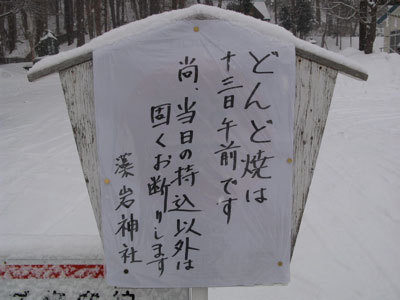 どんど焼は
十三日午前です
尚、当日の持込以外は
固くお断りします
藻岩神社